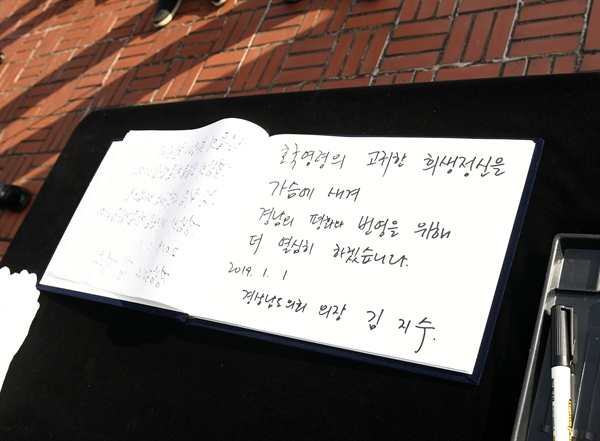 호국영령의 고귀한 희생정신을
가슴에 새겨
경남의 평화와 번영을 위해
더 열심히 하겠습니다.
2019. 1. 1
경상남도의회 의장 김지수.